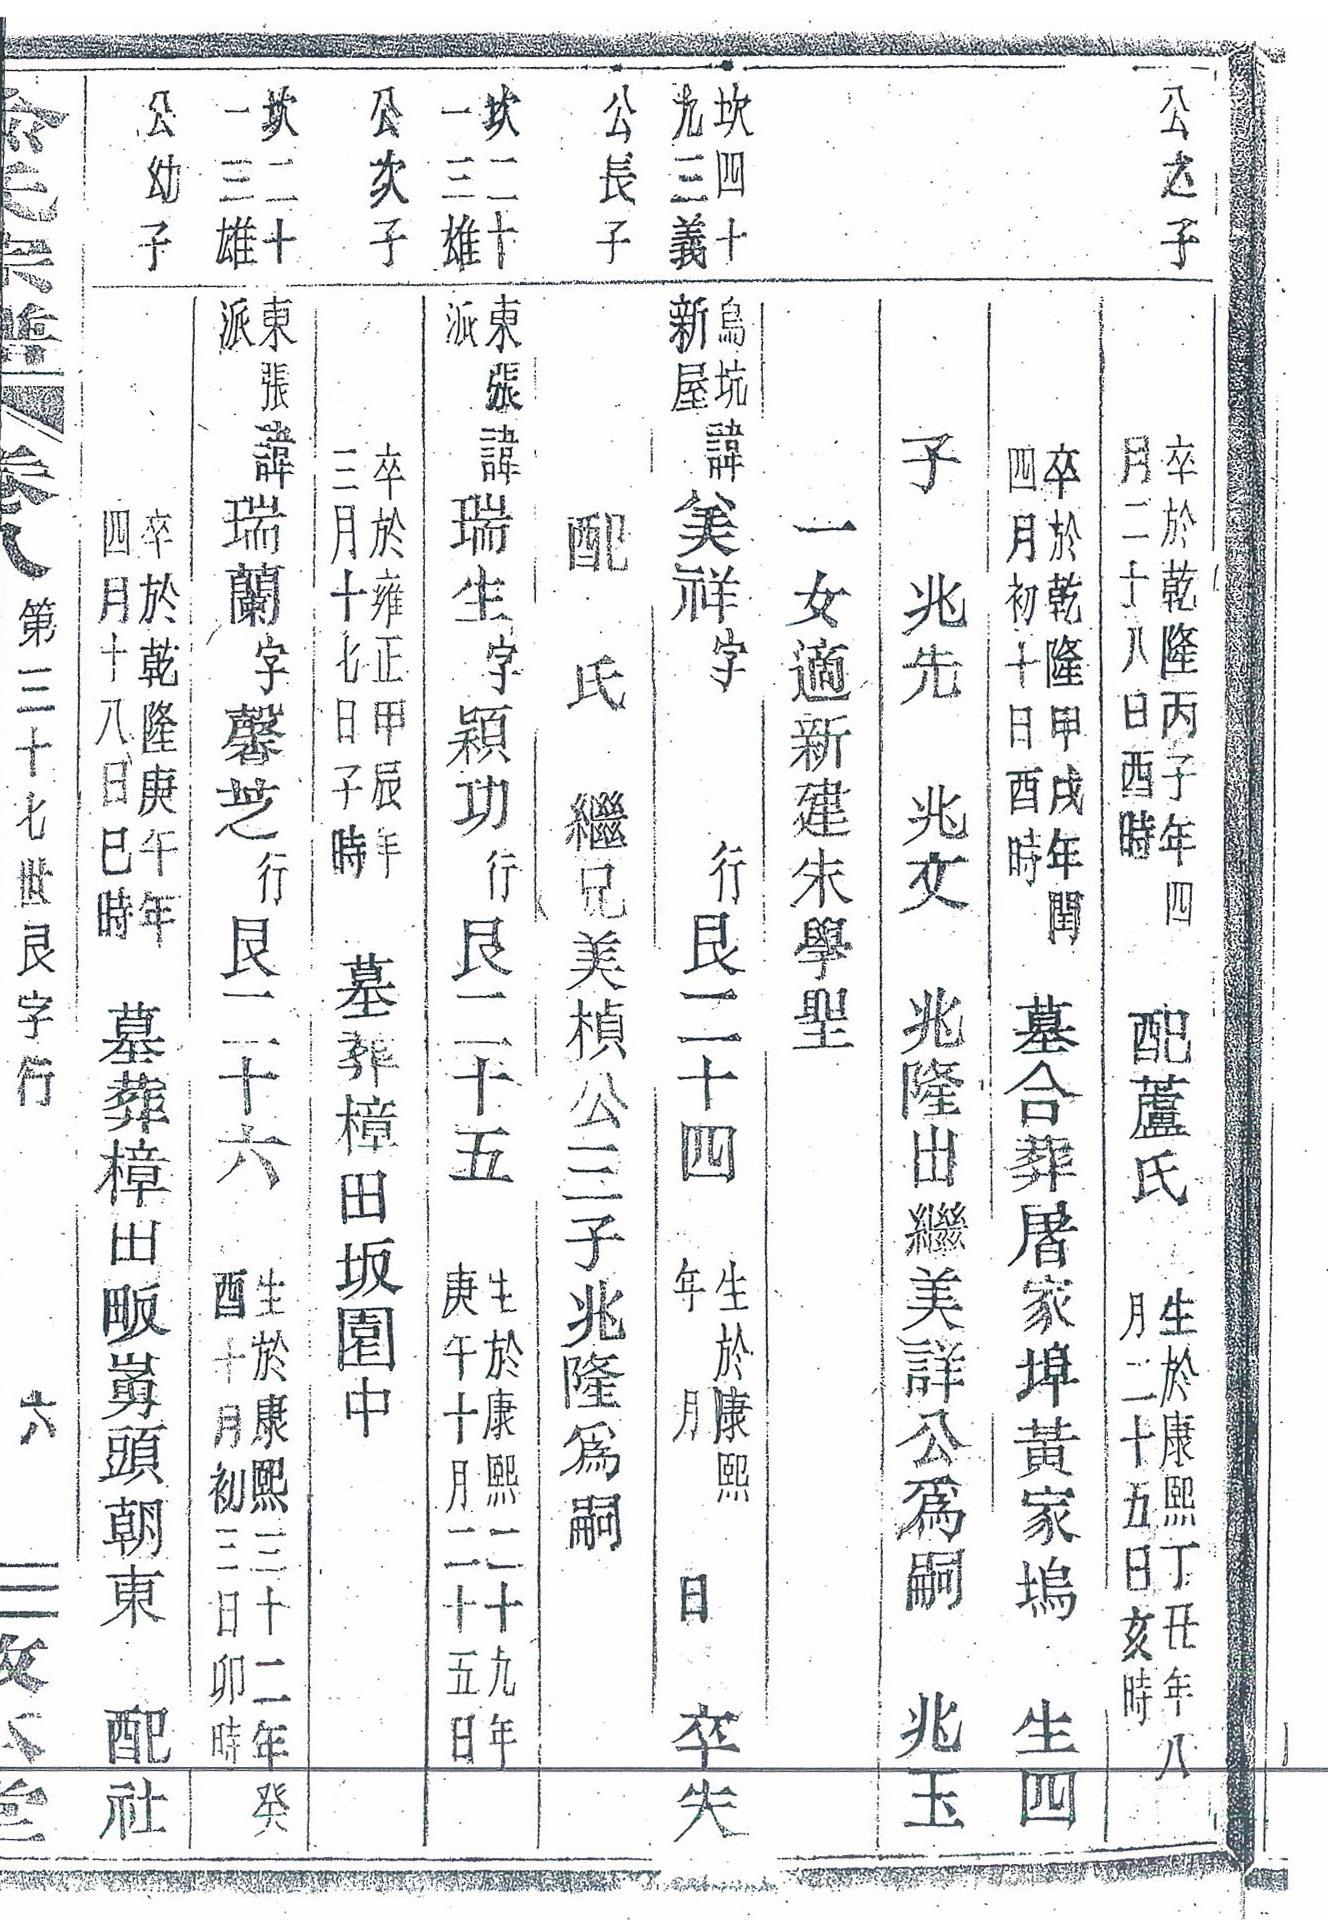 公之子
卒於乾隆丙子年四
月二十八日酉時
配蘆氏
生於康熙丁丑年八
月二十五日亥時
卒於乾隆甲戌年閏
四月初十日酉時
墓合葬屠家埠黃家塢
生四
子 兆先 兆文 兆隆出繼美詳公爲嗣 兆玉
一女適新建朱學聖
坎四十
九三義
烏坑
新屋
諱美祥字 行艮二十四
生於康熙
年 月 日
卒失
公長子
配 氏 繼兄美楨公三子兆隆爲嗣
坎二十
一三雄
東張
派
諱瑞生字穎功行艮二十五
生於康熙二十九年
庚午十月二十五日
公次子
卒於雍正甲辰年
三月十七日子時
墓葬樟田坂園中
坎二十
一三雄
東張
派
諱瑞蘭字馨芝行艮二十六
生於康熙三十二年癸
酉十月初三日卯時
公幼子
卒於乾隆庚午年
四月十八日巳時
墓葬樟田畈頭朝東 配社
氏宗譜 卷八 第三十七世艮字行 六